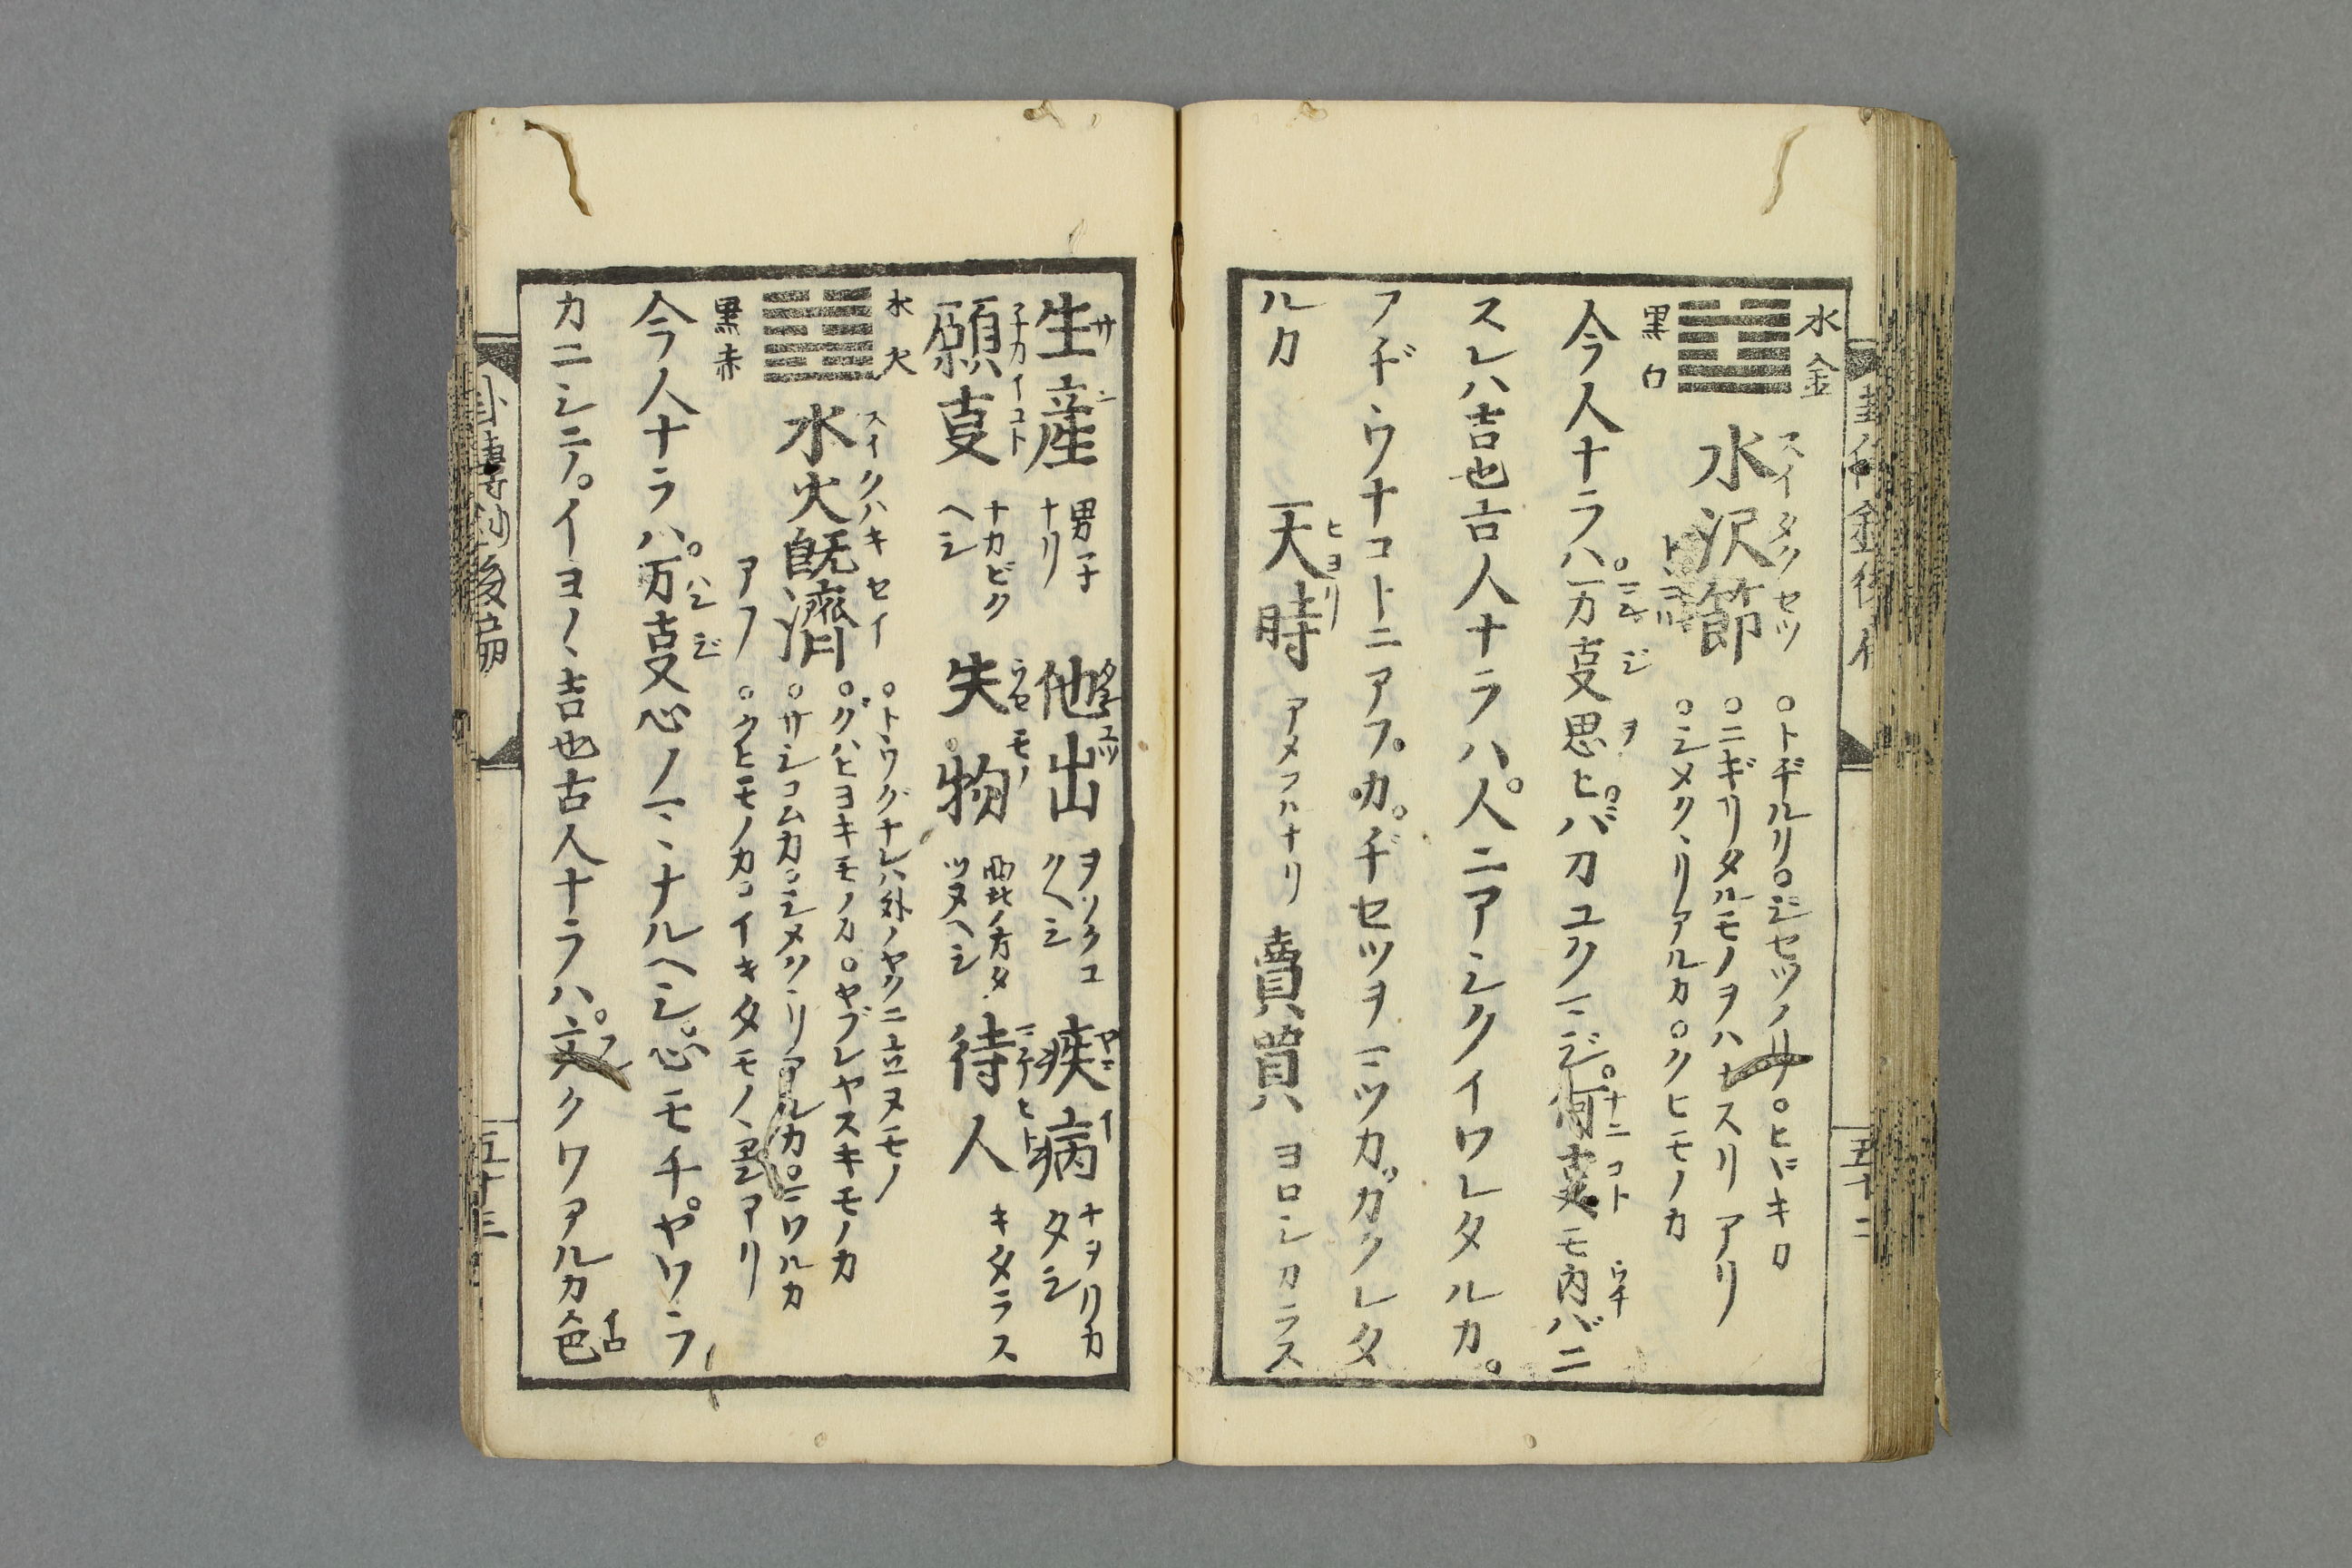 水金
䷻
黒白
水沢節
スイタクセツ
○トヂルリ○ジセツノ
○ニギリタルモノヲハ スリ アリ
○シメクヽリアルカ○クヒモノカ
今人ナラハ○万事思ヒバカユクマジ○何事モ内バニ
スレハ吉也古人ナラハ○人ニアシクイワレタルカ○
アヂヽウナコトニアフ○カ○ヂセツヲミツカ○カクレタ
ルカ
天時
ヒヨリ
アメフルナリ
賣買
ヨロシカラス
五十二
生産
サン
男子
ナリ
他出
ヲソクユ
クヘシ
疾病
ヤマイ
ナヲリカ
タシ
願事
子カイコト
ナカビク
ヘシ
失物
ウセモノ
西北ノ方タ
ツヌヘシ
待人
マチヒト
キタラス
水火
䷾
黒赤
水火既濟
スイクハキセイ
○トウグナレハ外ノヤクニ立ヌモノ
○グハヒヨキモノカ○ヤブレヤスキモノカ
○サシコムカ○シメクヽリアルカ○ニワルカ
アフ
○クヒモノカ○イキタモノ アリ
今人ナラハ○万事心ノマヽナルヘシ○心モチ○ヤワラ
カニシテ○イヨ〱吉也古人ナラハ○文クワアルカ色
五十三